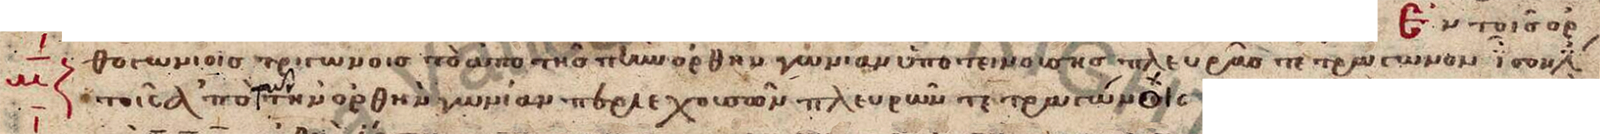 Ἐν τοῖς ὀρ
θογωνίοις τριγώνοις τὸ ἀπὸ τῆς τὴν ὀρθὴν γωνίαν ὑποτεινούσης πλευρᾶς τετράγωνον ἴσον
τοῖς ἀπὸ τῶν τὴν ὀρθὴν γωνίαν περιεχουσῶν πλευρῶν τετραγώνοις